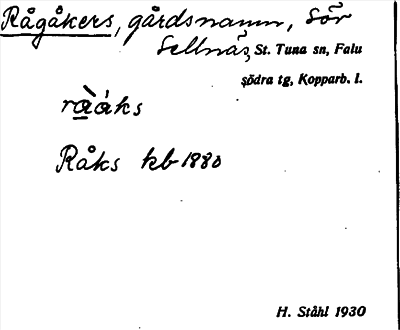 Rågåkers, gårdsnamn, Sör
Sellnäs, St. Tuna sn, Falu
södra tg, Kopparb. l.
råàks
Råks kb 1880
H. Ståhl 1930